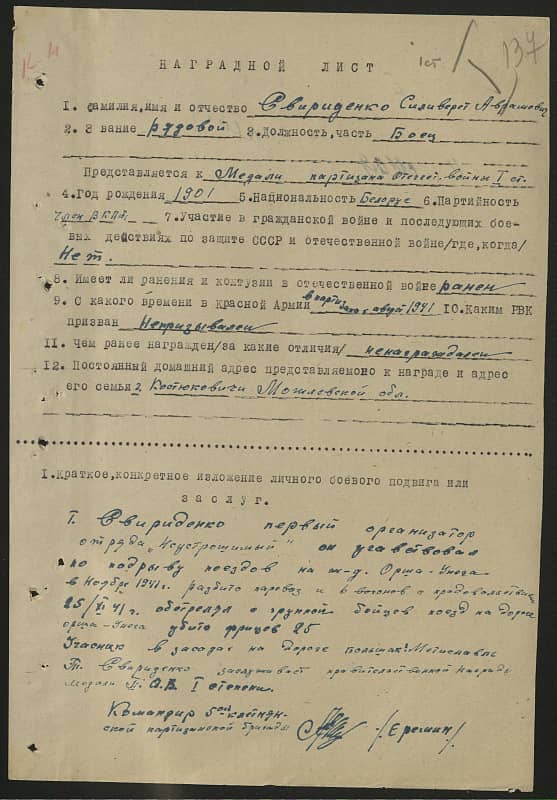 1 ст
137
НАГРАДНОЙ ЛИСТ
1. Фамилия,имя и отчество Свириденко Силиверст Аврамович
2. Звание рядовой 3.Должность,часть Боец
Представляется к Медали партизана Отечест. войны I ст.
4.Год рождения 1901 5.Национальность Белорус 6.Партийность
Член ВКП/б 7.Участие в гражданской войне и последующих бое-
вых действиях по защите СССР и отечественной войне/где,когда/
Нет.
8. Имеет ли ранения и контузии в отечественной войне ранен
9. С какого времени в Красной Армии в парти с август 1941 10.Каким РВК
призван Непризывался
11. Чем ранее награжден/за какие отличия/ ненаграждался
12. Постоянный домашний адрес представляемоно к награде и адрес
его семьи г Костюковичи Могилевской обл.
1.Краткое,конкретное изложение личного боевого подвига или
заслуг.
Т. Свириденко первый организатор
отряда „Неустрашимый" он участвовал
по подрыву поездов на ж-д. Орша-Унеча
в Ноябре 1941г. разбито паровоз и 6 вагонов с продовольствием
25/XI 41г. обстрелял с группой бойцев поезд на дороге
Орша-Унеча убито фрицев 25
Учасник в засадах на дороге Мстиславль
Т. Свириденко заслуживает правительственной награды
медали П. О.В. I степени.
Командир 5ой клетнян-
ской партизанской бригады /Еремин/